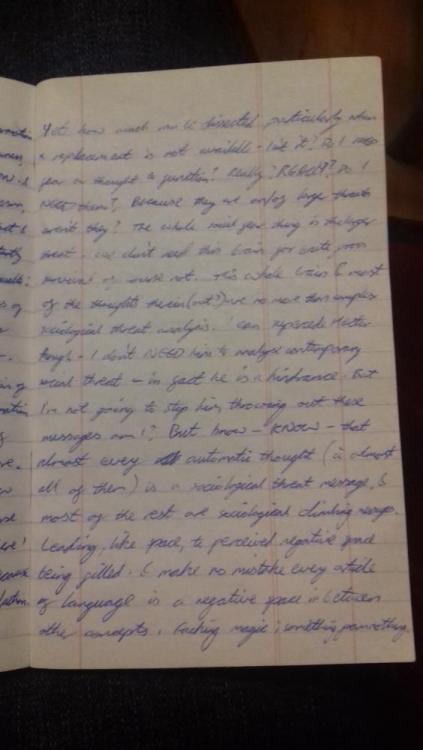 Yet how much can be dissected particularly when
a replacement is not available - isn't it? Do I need
fear or thought to function? Really? REALLY? Do I
NEED them? Because they are only large threats
aren't they? The whole social fear thing is the bigger
threat - we don't need this brain for
of course not. This whole brain & most
of the thoughts therein (out?) are no more than complex
sociological threat analysis. I can
though - I don't NEED him to analyse contemporary
social threat - in fact he is a hindrance. But
I'm not going to stop him throwing out these
messages am I? But know - KNOW - that
almost every automatic thought (in almost
all of them) is a sociological threat message, &
most of the rest are sociological climbing messages.
Leading, like space, to perceived negative space
being filled. & make no mistake every article
of language is a negative space in between
other concepts. Fucking magic; something from nothing.